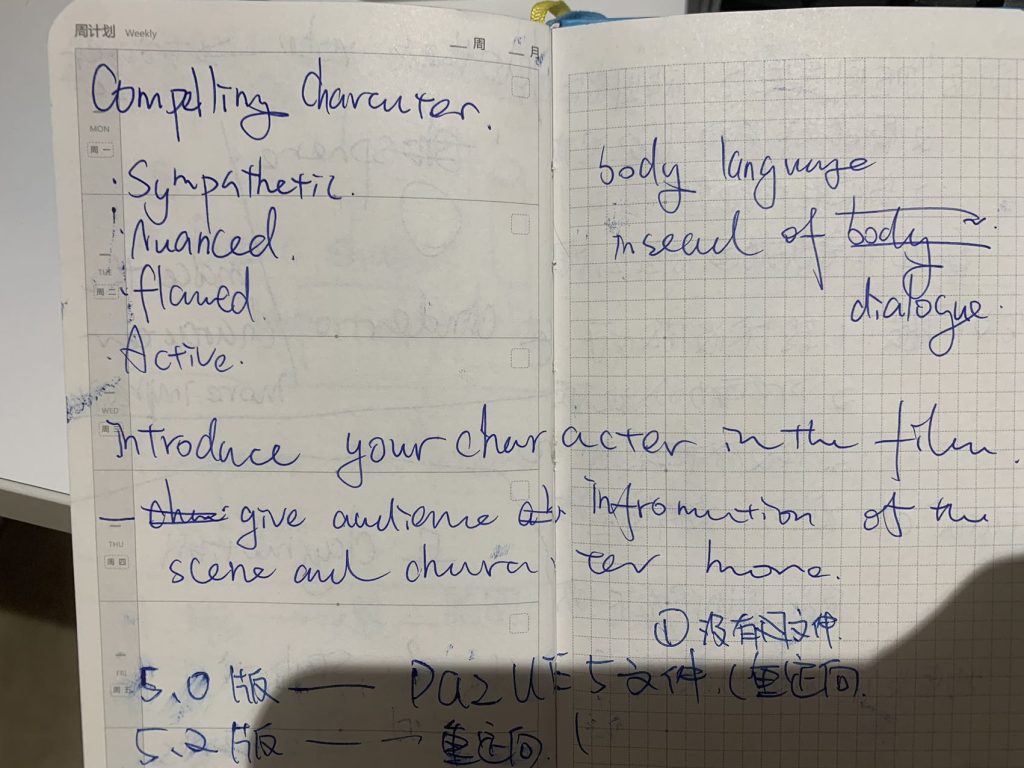 周计划 Weekly
周 月
Compelling Character.
MON
周一
· Sympathetic.
· Nuanced.
TUE
周二
· flawed.
· Active.
body language
insead of body
dialogue.
WED
周三
Introduce your character in the film.
— give audience infromation of the
THU
周四
scene and character more.
① 没有
文件
FRI
周五
5.0版 —— Daz UE5文件.(重定向)
5.2版 —— 重定向. (